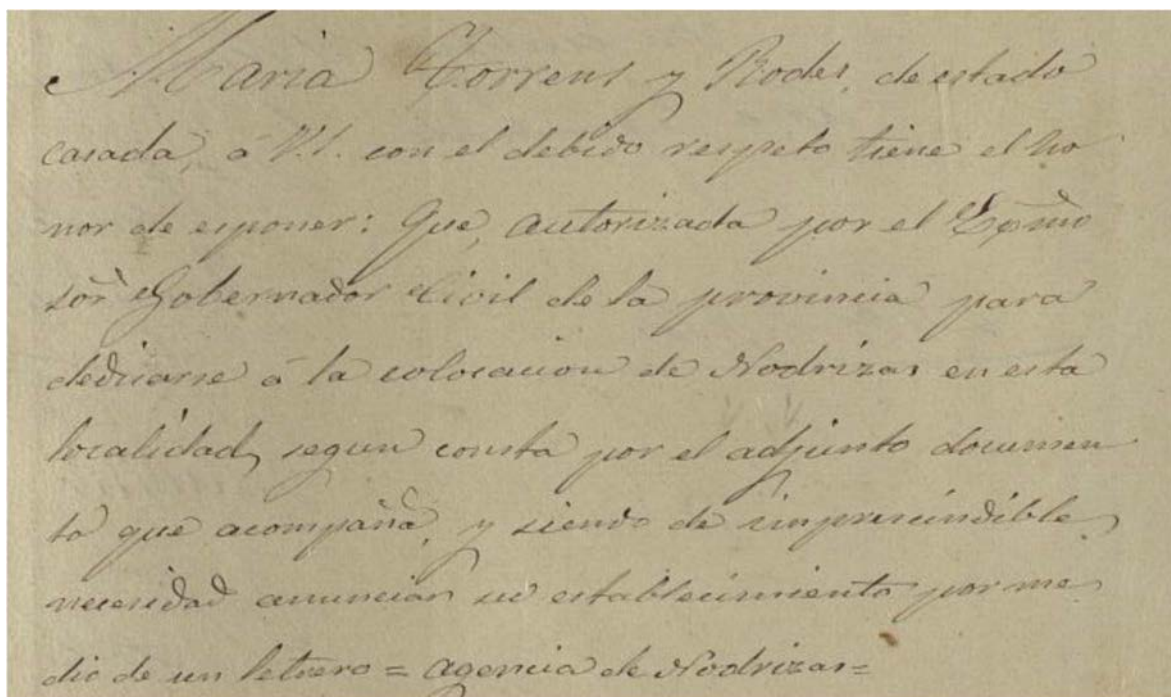 Maria Torrens y Rodes, de estado
casada, á V.I. con el debido respeto tiene el ho
nor de esponer: Que, autorizada por el Exp̃mo
Sór Gobernador Civil de la provincia para
dedicarse á la colocacion de Nodrizas en esta
localidad, segun consta por el adjunto documen
to que acompaña, y siendo de imprescindible
necesidad anunciar su establecimiento por me
dio de un letrero = Agencia de Nodrizas =